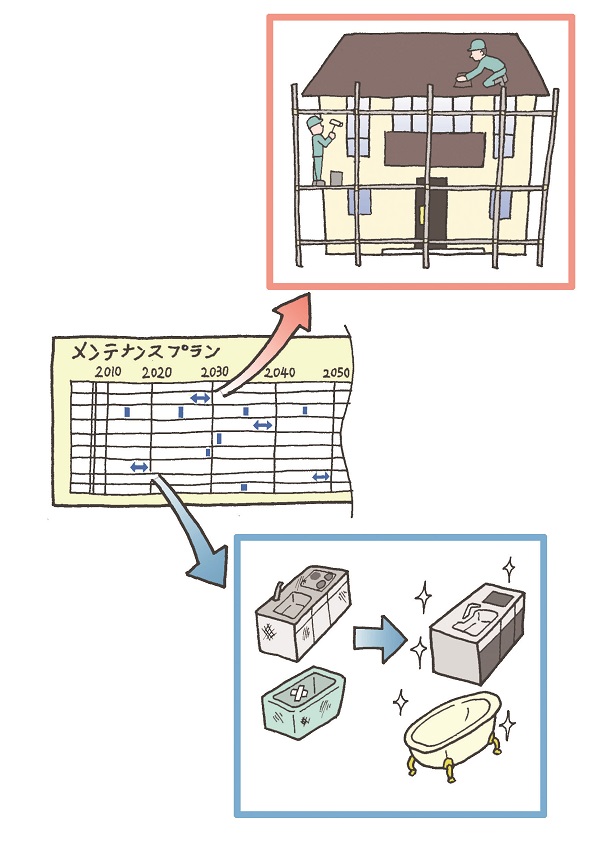 メンテナンスプラン
2010 2020 2030 2040 2050